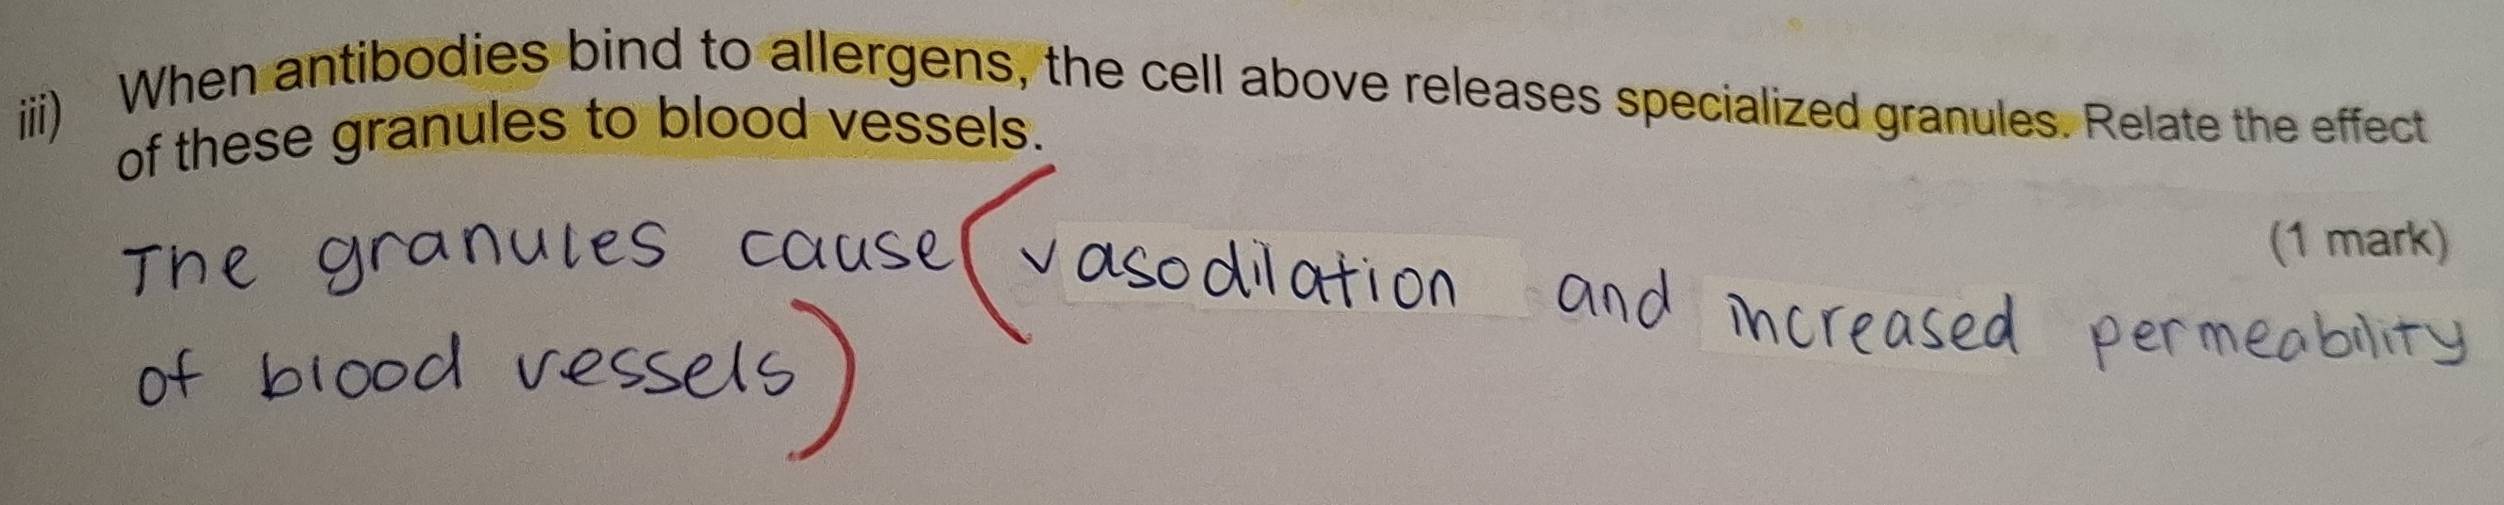 iii) When antibodies bind to allergens, the cell above releases specialized granules. Relate the effect
of these granules to blood vessels.
(1 mark)
The granules cause (vasodilation and increased permeability
of blood vessels)